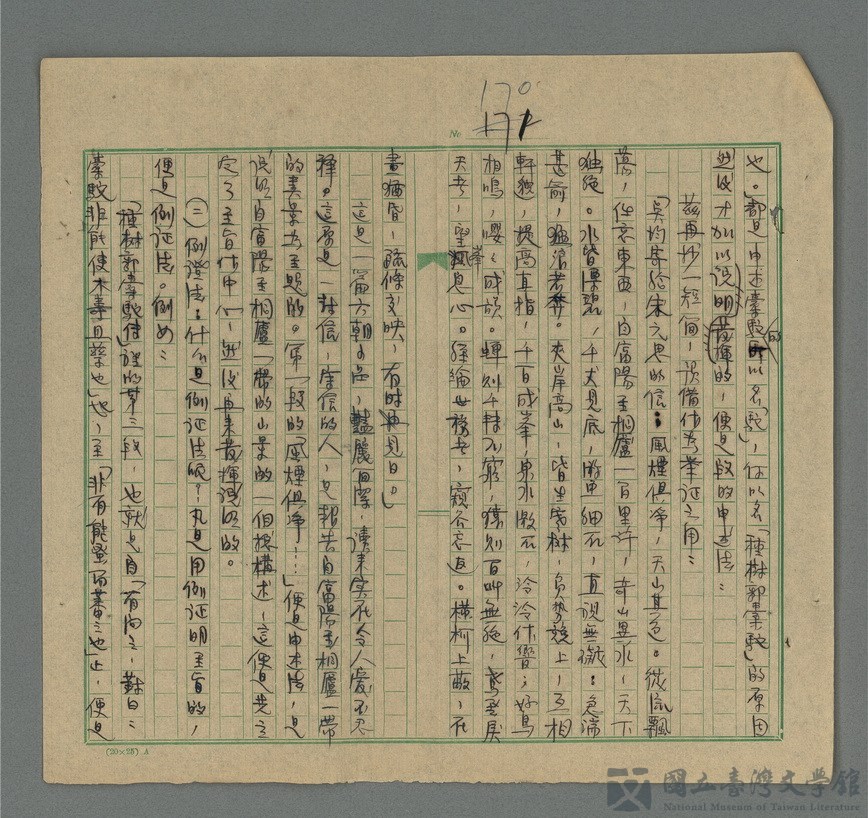 170
171
No.
也。」都是申述橐駝所以名「駝」,何以名「種樹郭橐駝」的原因
然後才加以說明發揮的,便是段的申述法:
茲再抄一短簡,預備作為舉証之用:
「吳均寄給宋元思的信:風煙俱淨,天山共色。從流飄
蕩,任意東西,自富陽至桐廬一百里許,奇山異水,天下
獨絕。水皆漂碧,千丈見底,游魚細石,直視無礙。急湍
甚前,猛浪若奔。夾岸高山,皆生寒樹,負勢競上,互相
軒邈,爭高直指,千百成峯,泉水激石,泠泠作響;好鳥
相鳴,嚶嚶成韻。蟬則千轉不窮,猿則百叫無絕,鳶飛戾
天者,望峯息心。經綸世務者,窺谷忘返。橫柯上蔽,在
晝猶昏,疏條交映,有時見日。」
這是一篇六朝小品,豔麗簡潔,讀來實在令人愛不忍
釋。這原是一封信,寫信的人,是報告自富陽至桐廬一帶
的美景為主題的。第一段的「風煙俱淨⋯⋯」便是申述法,是
說明自富陽至桐廬一帶的山景的一個總構述,這便是先立
定了主旨作中心,然後再來發揮說明的。
(二)例證法:什么是例証法呢?凡是用例証明主旨的,
便是例証法。例如:
「種樹郭橐駝傳」裡的第三段,也就是自「有問之,對曰:
橐駝非能使木壽且孳也」也,至「非有能蚤而蕃之也」止,便是
(20×25) A
國立臺灣文學館
National Museum of Taiwan Literature